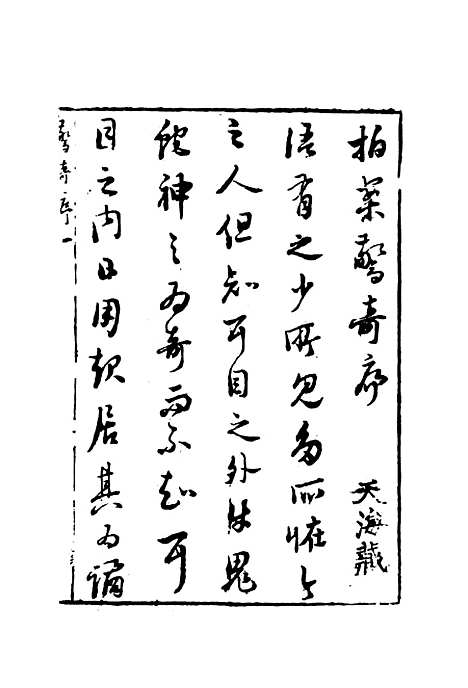 拍案驚奇序
天海藏
語有之少所見多所怪今
之人但知耳目之外牛鬼
蛇神之為奇而不知耳
目之內日用起居其為譎
驚奇序 一